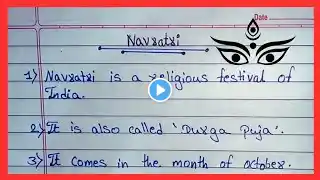 Date
Navratri
1) Navratri is a religious festival of
India.
2) It is also called 'Durga Puja'.
3) It comes in the month of october.